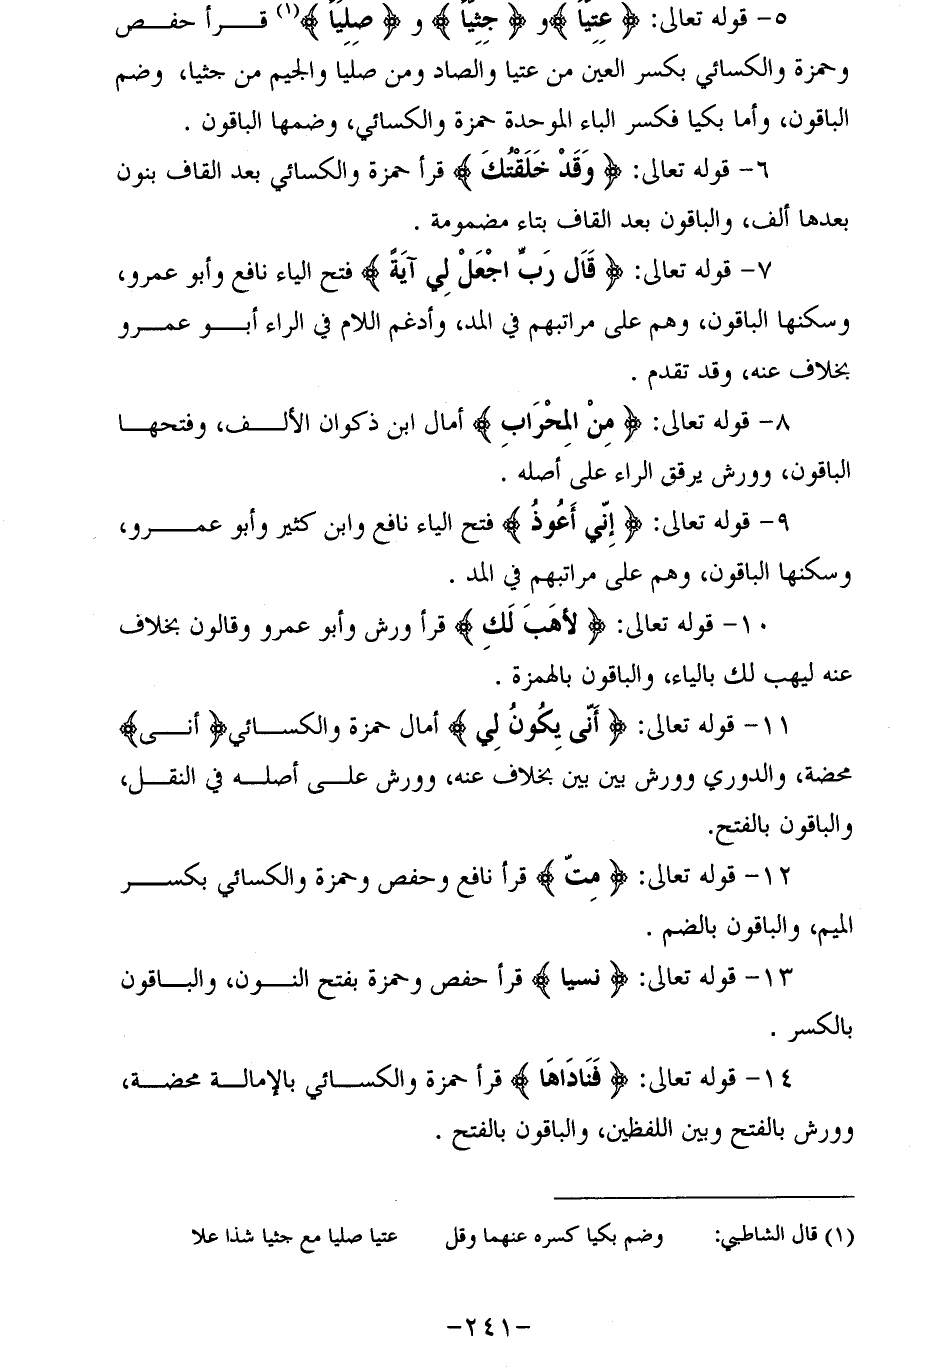 ٥- قوله تعالى: ﴿ عتيّاً ﴾و ﴿ جثيّاً ﴾ و ﴿ صلياً ﴾(١) قــرأ حفــص
وحمزة والكسائي بكسر العين من عتيا والصاد ومن صليا والجيم من جثيا، وضم
الباقون، وأما بكيا فكسر الباء الموحدة حمزة والكسائي، وضمها الباقون .
٦- قوله تعالى: ﴿ وَقَدْ خَلَقْتُكَ ﴾ قرأ حمزة والكسائي بعد القاف بنون
بعدها ألف، والباقون بعد القاف بتاء مضمومة .
٧- قوله تعالى: ﴿ قَالَ رَبِّ اجْعَلْ لِي آيَةً ﴾ فتح الياء نافع وأبو عمرو،
وسكنها الباقون، وهم على مراتبهم في المد، وأدغم اللام في الراء أبــو عمــرو
بخلاف عنه، وقد تقدم .
٨- قوله تعالى: ﴿ مِنْ الْمِحْرَابِ ﴾ أمال ابن ذكوان الألــف، وفتحهــا
الباقون، وورش يرقق الراء على أصله .
٩- قوله تعالى: ﴿ إِنّي أَعُوذُ ﴾ فتح الياء نافع وابن كثير وأبو عمــرو،
وسكنها الباقون، وهم على مراتبهم في المد .
١٠- قوله تعالى: ﴿ لأهَبَ لَكِ ﴾ قرأ ورش وأبو عمرو وقالون بخلاف
عنه ليهب لك بالياء، والباقون بالهمزة .
١١- قوله تعالى: ﴿ أَنّى يَكُونُ لِي ﴾ أمال حمزة والكســائي﴿ أنــى﴾
محضة، والدوري وورش بين بين بخلاف عنه، وورش علــى أصلــه في النقل،
والباقون بالفتح.
١٢- قوله تعالى: ﴿ مِتّ ﴾ قرأ نافع وحفص وحمزة والكسائي بكســر
الميم، والباقون بالضم .
١٣- قوله تعالى: ﴿ نسيا ﴾ قرأ حفص وحمزة بفتح النــون، والبــاقون
بالكسر .
١٤- قوله تعالى: ﴿ فَنَادَاهَا ﴾ قرأ حمزة والكســائي بالإمالــة محضــة،
وورش بالفتح وبين اللفظين، والباقون بالفتح .
(١) قال الشاطبي: وضم بكيا كسره عنهما وقل عتيا صليا مع جثيا شذا علا
-٢٤١-